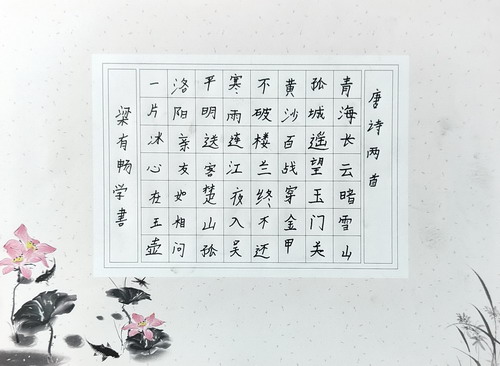 唐诗两首
青海长云暗雪山
孤城遥望玉门关
黄沙百战穿金甲
不破楼兰终不还
寒雨连江夜入吴
平明送客楚山孤
洛阳亲友如相问
一片冰心在玉壶
梁有畅学書